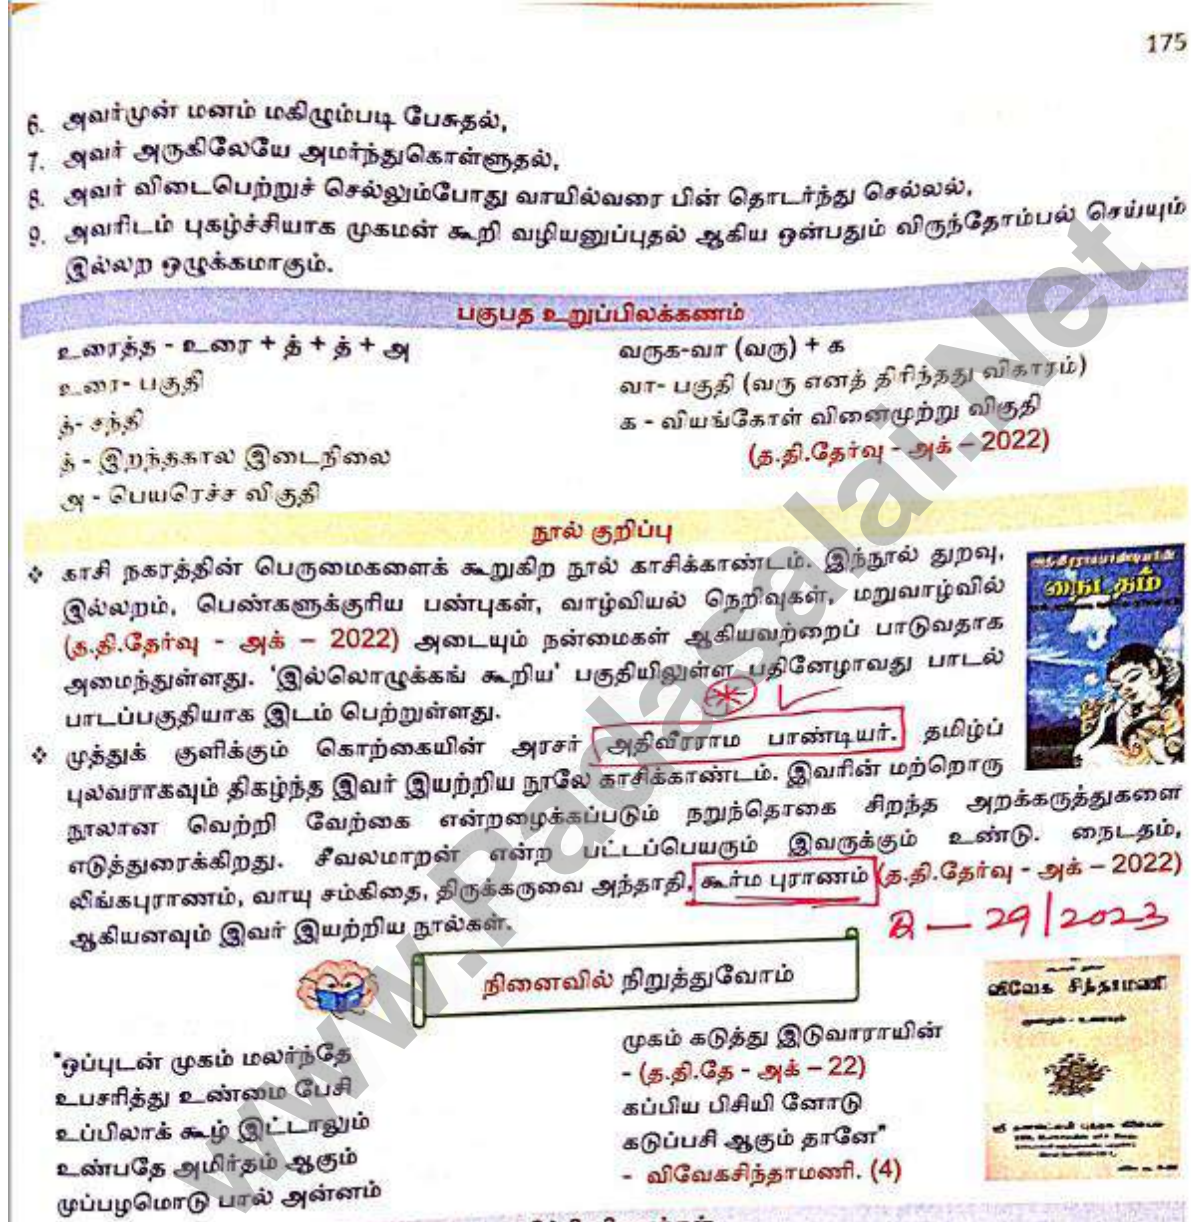 175
6. அவர்முன் மனம் மகிழும்படி பேசுதல்,
7. அவர் அருகிலேயே அமர்ந்துகொள்ளுதல்,
8. அவர் விடைபெற்றுச் செல்லும்போது வாயில்வரை பின் தொடர்ந்து செல்லல்,
9. அவரிடம் புகழ்ச்சியாக முகமன் கூறி வழியனுப்புதல் ஆகிய ஒன்பதும் விருந்தோம்பல் செய்யும்
இல்லற ஒழுக்கமாகும்.
பகுபத உறுப்பிலக்கணம்
உரைத்த - உரை + த் + த் + அ
உரை- பகுதி
த்- சந்தி
த் - இறந்தகால இடைநிலை
அ - பெயரெச்ச விகுதி
வருக-வா (வரு) + க
வா- பகுதி (வரு எனத் திரிந்தது விகாரம்)
க - வியங்கோள் வினைமுற்று விகுதி
(த.தி.தேர்வு - அக் – 2022)
நூல் குறிப்பு
❖ காசி நகரத்தின் பெருமைகளைக் கூறுகிற நூல் காசிக்காண்டம். இந்நூல் துறவு,
இல்லறம், பெண்களுக்குரிய பண்புகள், வாழ்வியல் நெறிவுகள், மறுவாழ்வில்
(த.தி.தேர்வு - அக் – 2022) அடையும் நன்மைகள் ஆகியவற்றைப் பாடுவதாக
அமைந்துள்ளது. 'இல்லொழுக்கங் கூறிய' பகுதியிலுள்ள பதினேழாவது பாடல்
பாடப்பகுதியாக இடம் பெற்றுள்ளது.
❖ முத்துக் குளிக்கும் கொற்கையின் அரசர் அதிவீரராம பாண்டியர். தமிழ்ப்
புலவராகவும் திகழ்ந்த இவர் இயற்றிய நூலே காசிக்காண்டம். இவரின் மற்றொரு
நூலான வெற்றி வேற்கை என்றழைக்கப்படும் நறுந்தொகை சிறந்த அறக்கருத்துகளை
எடுத்துரைக்கிறது. சீவலமாறன் என்ற பட்டப்பெயரும் இவருக்கும் உண்டு. நைடதம்,
லிங்கபுராணம், வாயு சம்கிதை, திருக்கருவை அந்தாதி, கூர்ம புராணம் (த.தி.தேர்வு - அக் – 2022)
ஆகியனவும் இவர் இயற்றிய நூல்கள்.
நைடதம்
Q – 29/2023
நினைவில் நிறுத்துவோம்
"ஒப்புடன் முகம் மலர்ந்தே
உபசரித்து உண்மை பேசி
உப்பிலாக் கூழ் இட்டாலும்
உண்பதே அமிர்தம் ஆகும்
முப்பழமொடு பால் அன்னம்
முகம் கடுத்து இடுவாராயின்
- (த.தி.தே - அக் – 22)
கப்பிய பிசியி னோடு
கடுப்பசி ஆகும் தானே"
- விவேகசிந்தாமணி. (4)
விவேக சிந்தாமணி
www.Padasalai.Net